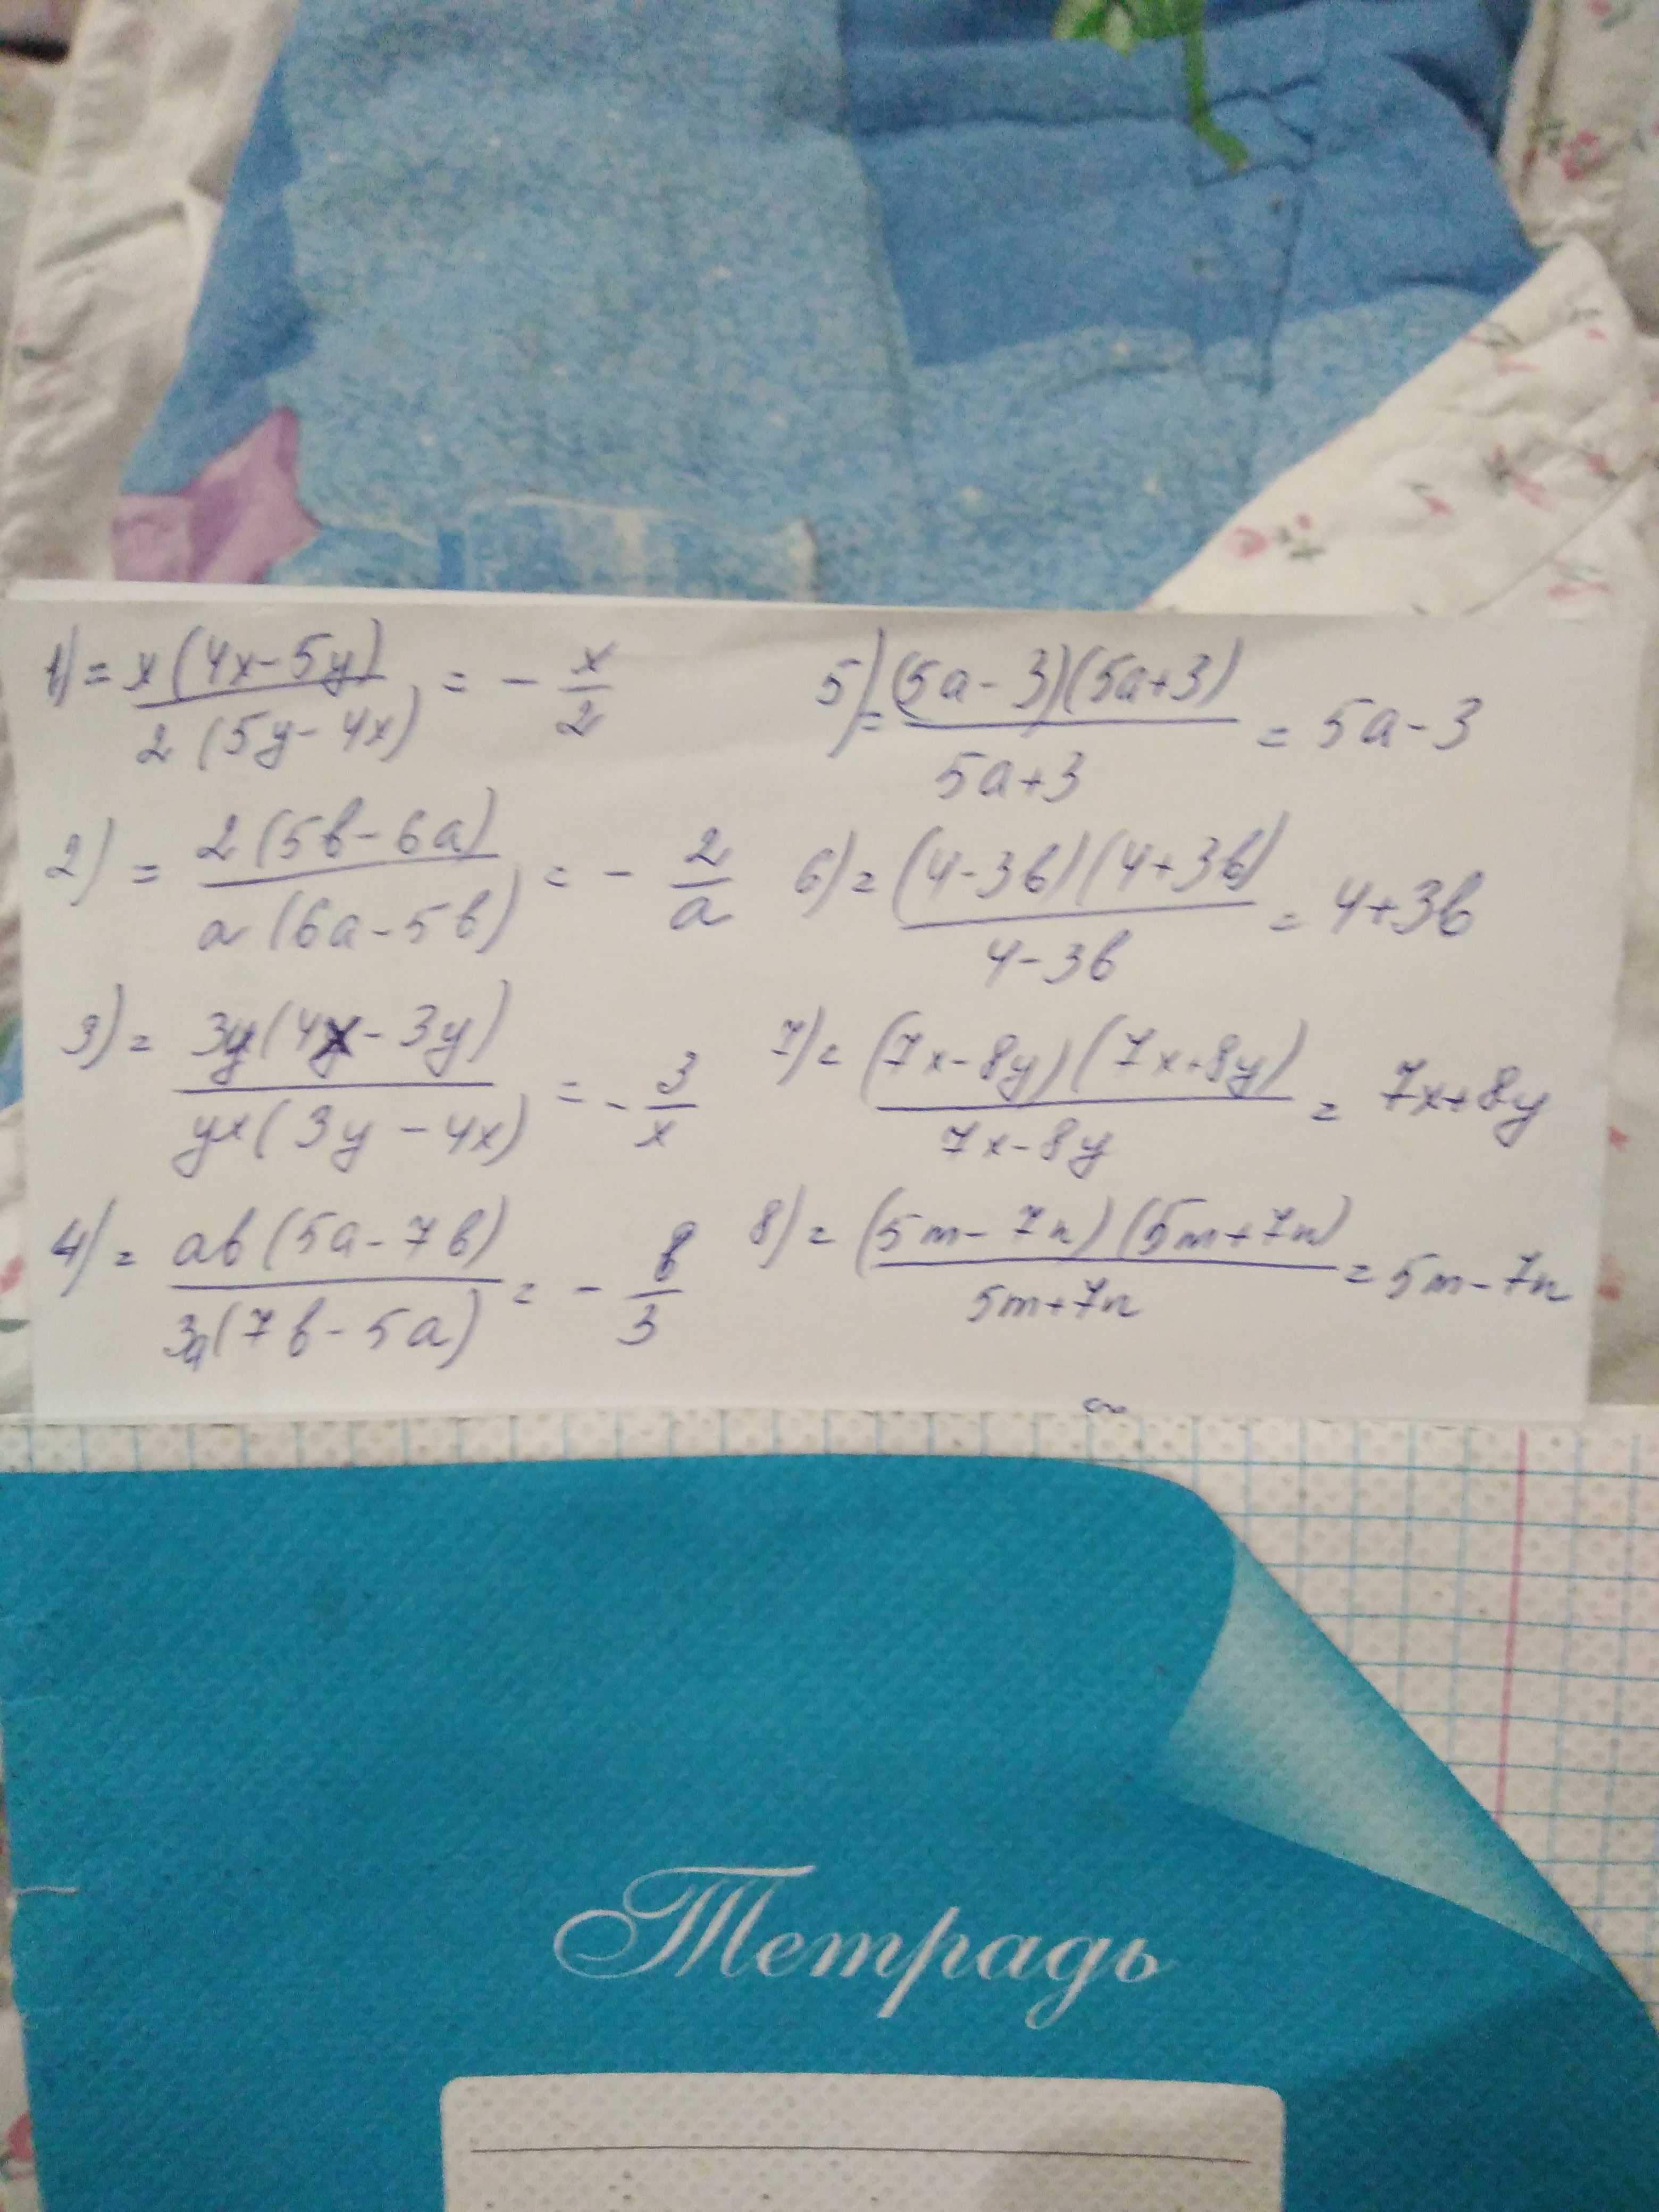 1) = x(4x-5y) / 2(5y-4x) = - x/2
2) = 2(5b-6a) / a(6a-5b) = - 2/a
3) = 3y(4x-3y) / yx(3y-4x) = - 3/x
4) = ab(5a-7b) / 3a(7b-5a) = - b/3
5) = (5a-3)(5a+3) / 5a+3 = 5a-3
6) = (4-3b)(4+3b) / 4-3b = 4+3b
7) = (7x-8y)(7x+8y) / 7x-8y = 7x+8y
8) = (5m-7n)(5m+7n) / 5m+7n = 5m-7n
Тетрадь